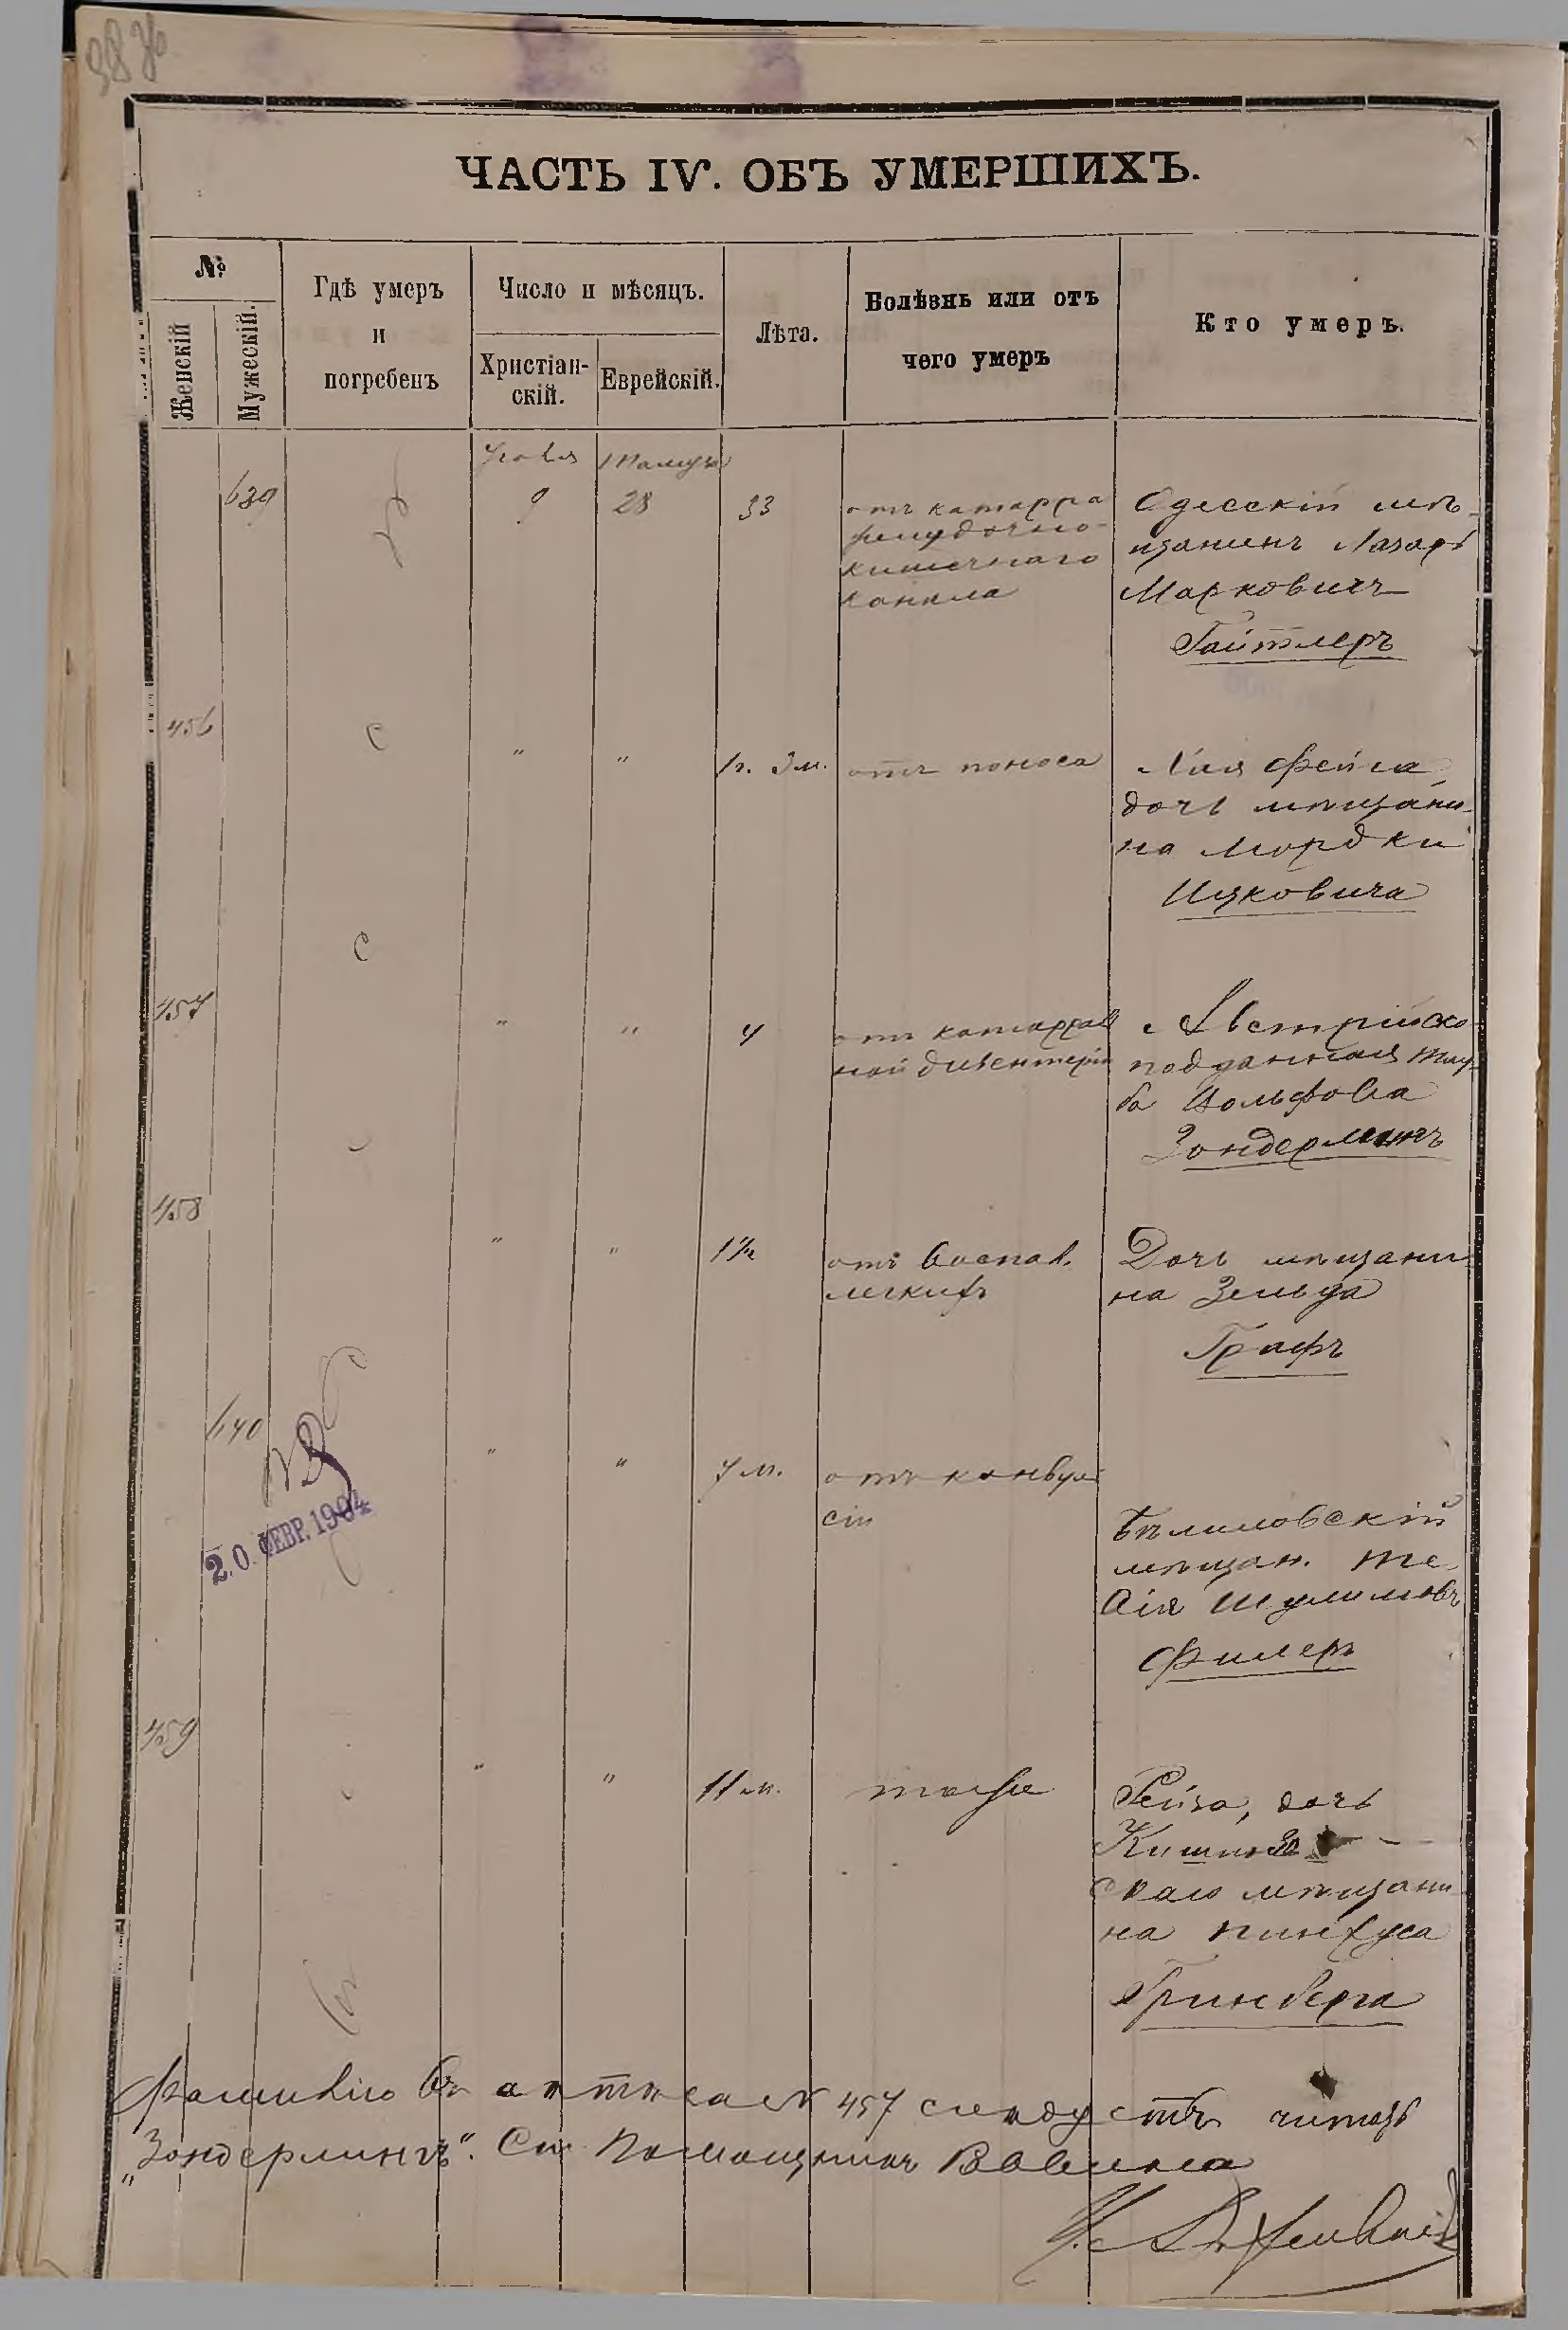 ЧАСТЬ IV. ОБЪ УМЕРШИХЪ.
№
Женскій
Мужескій.
Гдѣ умеръ
и
погребенъ
Число и мѣсяцъ.
Христіан-
скій.
Еврейскій.
Лѣта.
Болѣзнь или отъ
чего умеръ
Кто умеръ.
Іюля Тамуза
639 9 28 33
отъ катарра
желудочно-
кишечнаго
канала
Одесскій мѣ-
щанинъ Лазарь
Марковичъ
Гайтлеръ
456 " " 1 г. 3 м. отъ поноса
Лия Фейга
дочь мѣщани-
на Мордки
Ицковича
457 " " 4
отъ катаррал
ной дизентеріи
Австрійско
подданная Тау-
ба Вольфова
Зондерлингъ
458 " " 1 1/2
отъ воспал.
легкихъ
Дочь мѣщани-
на Зельда
Графъ
640 " " 7 м.
отъ конвул
сіи
Бѣлиловскій
мѣщан. Те-
вія Шулимовъ
Филеръ
20 ФЕВР. 1904
459 " " 11 м. тоже
Рейза, дочь
Кишинев
скаго мѣщани
на Пинхуса
Гринберга
Фамилію въ актѣ за № 457 слѣдуетъ читать
„Зондерлингъ“. Помощникъ Раввина